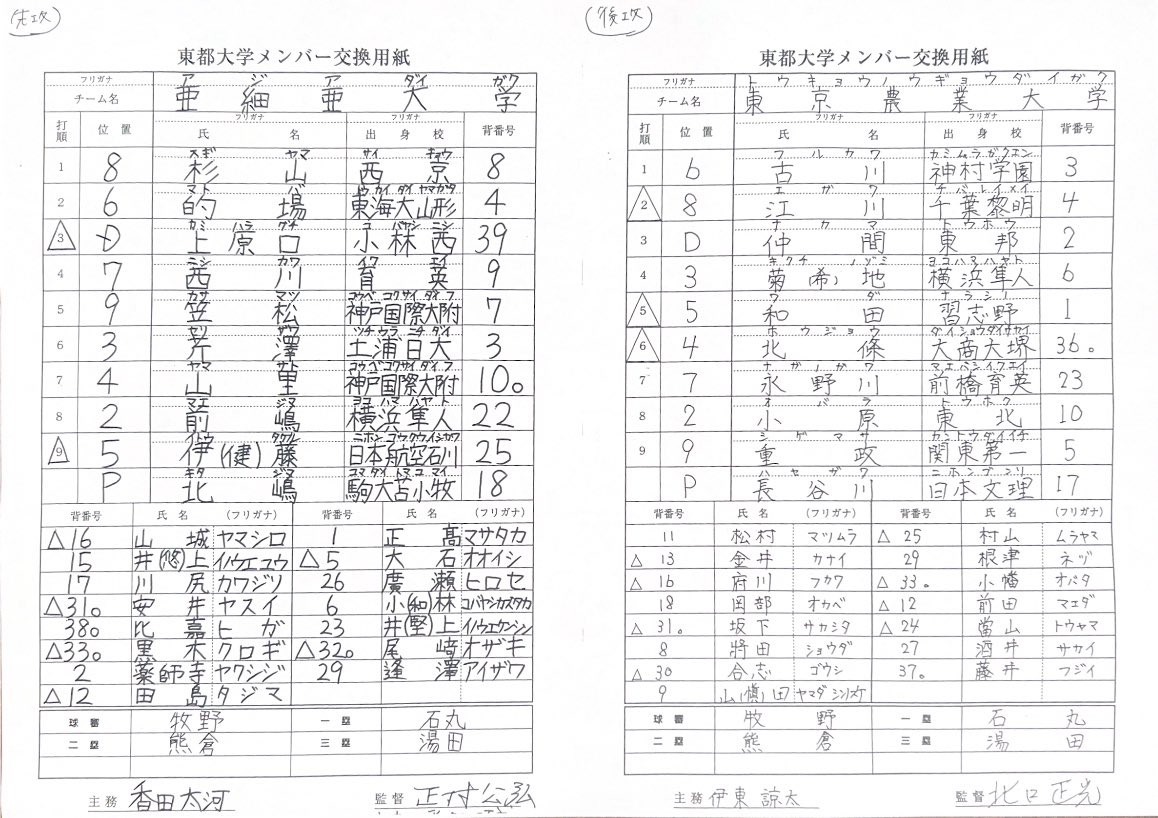 (先攻)
東都大学メンバー交換用紙
フリガナ ア ジ ア ダイ ガク
チーム名 亜 細 亜 大 学
打順 位置 フリガナ 氏 名 フリガナ 出身校 背番号
スギ ヤマ サイ キョウ
1 8 杉 山 西 京 8
マト バ トウカイ ダイ ヤマガタ
2 6 的 場 東海大山形 4
カミ ハラ グチ コ バヤシ ニシ
△3 D 上 原 口 小 林 西 39
ニシ カワ イク エイ
4 7 西 川 育 英 9
カサ マツ コウベ コクサイ ダイ フ
5 9 笠 松 神戸国際大附 7
セリ ザワ ツチウラ ニチ ダイ
6 3 芹 澤 土浦日大 3
ヤマ サト コウベ コクサイ ダイ フ
7 4 山 里 神戸国際大附 10○
マエ ジマ ヨコ ハマ ハヤト
8 2 前 嶋 横浜隼人 22
イ タケル トウ ニホン コウクウ イシカワ
△9 5 伊(健)藤 日本航空石川 25
キタ ジマ コマ ダイ トマ コ マイ
P 北 嶋 駒大苫小牧 18
背番号 氏 名 (フリガナ) 背番号 氏 名 (フリガナ)
△16 山 城 ヤマシロ 1 正 髙 マサタカ
15 井(悠)上 イノウエユウ △5 大 石 オオイシ
17 川 尻 カワジリ 26 廣 瀬 ヒロセ
△31○ 安 井 ヤスイ 6 小(和)林 コバヤシカズタカ
38○ 比 嘉 ヒガ 23 井(堅)上 イノウエケンシン
△33○ 黒 木 クロギ △32○ 尾 﨑 オザキ
2 薬師寺 ヤクシジ 29 逢 澤 アイザワ
△12 田 島 タジマ
球審 牧野 一塁 石丸
二塁 熊倉 三塁 湯田
主務 香田大河 監督 正村公弘
(後攻)
東都大学メンバー交換用紙
フリガナ トウキョウノウギョウダイガク
チーム名 東 京 農 業 大 学
打順 位置 フリガナ 氏 名 フリガナ 出身校 背番号
フルカワ カミムラガクエン
1 6 古 川 神村学園 3
エガワ チバレイメイ
△2 8 江 川 千葉黎明 4
ナカマ トウホウ
3 D 仲 間 東 邦 2
キクチ ノゾミ ヨコハマハヤト
4 3 菊(希)地 横浜隼人 6
ワダ ナラシノ
△5 5 和 田 習志野 1
ホウジョウ ダイショウダイサカイ
△6 4 北 條 大商大堺 36○
ナガノカワ マエバシイクエイ
7 7 永野川 前橋育英 23
オバラ トウホク
8 2 小 原 東 北 10
シゲマサ カントウダイイチ
9 9 重 政 関東第一 5
ハセガワ ニホンブンリ
P 長谷川 日本文理 17
背番号 氏 名 (フリガナ) 背番号 氏 名 (フリガナ)
11 松村 マツムラ △25 村山 ムラヤマ
△13 金井 カナイ 29 根津 ネヅ
△16 府川 フカワ △33○ 小幡 オバタ
18 岡部 オカベ △12 前田 マエダ
△31○ 坂下 サカシタ △24 當山 トウヤマ
8 將田 ショウダ 27 酒井 サカイ
△30 合志 ゴウシ 37○ 藤井 フジイ
9 山(慎)田 ヤマダシンスケ
球審 牧 野 一塁 石 丸
二塁 熊 倉 三塁 湯 田
主務 伊東諒太 監督 北口正光